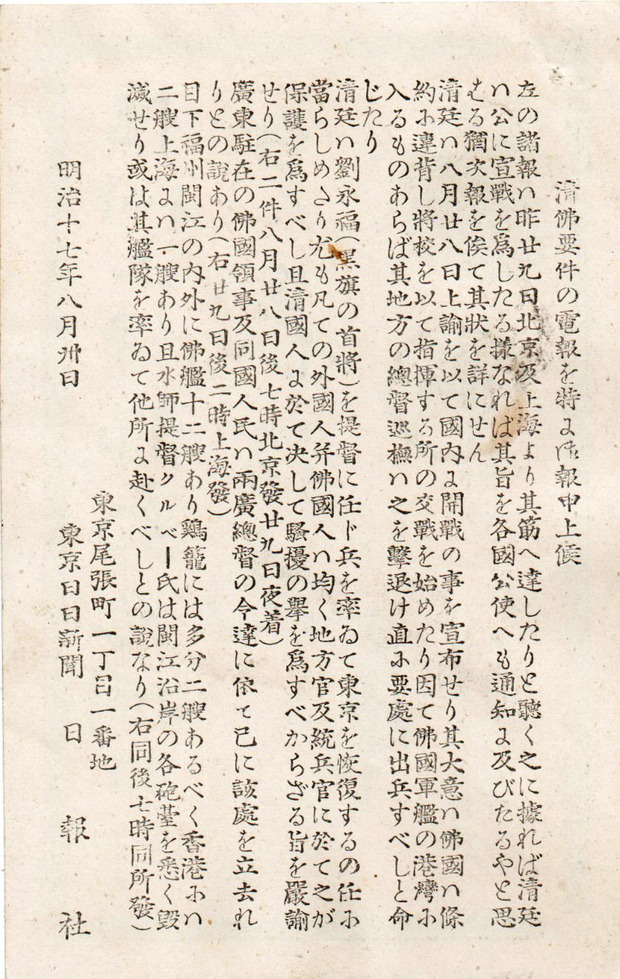 清佛要件の電報を特よ御報申上候
左の諸報ハ昨廿九日北京及上海より其筋へ達したりと聽く之に據れば清廷
ハ公に宣戰を爲したる樣なれば其旨を各國公使へも通知よ及びたるやと思
はる猶次報を俟て其狀を詳にせん
清廷ハ八月廿八日上諭を以て國内よ開戰の事を宣布せり其大意ハ佛國ハ條
約ふ違背し將校を以て指揮する所の交戰を始めたり因て佛國軍艦の港灣ふ
入るものあらば其地方の總督巡撫ハ之を擊退け直ふ要處に出兵すべしと命
じたり
清廷ハ劉永福(黑旗の首將)を提督に任ド兵を率ゐて東京を恢復するの任ふ
當らしめたり尤も凡ての外國人并佛國人ハ均く地方官及統兵官に於て之が
保護を爲すべし且清國人よ於て决して騷擾の擧を爲すべからざる旨を嚴諭
せり(右二件八月廿八日後七時北京發廿九日夜着)
廣東駐在の佛國領事及同國人民ハ兩廣總督の令達に依て已に該處を立去れ
りとの說あり(右廿九日後二時上海發)
目下福州閩江の内外に佛艦十二艘あり鷄籠には多分二艘あるべく香港ふハ
二艘上海よハ一艘あり且水師提督クルベー氏は閩江沿岸の各砲臺を悉く毀
滅せり或は其艦隊を率ゐて他所よ赴くべしとの說なり(右同後七時同所發)
明治十七年八月卅日
東京尾張町一丁目一番地
東京日日新聞 日報社